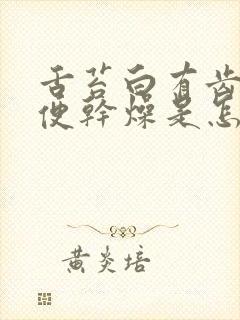 舌苔白有齒
便幹燥是怎
黄炎培